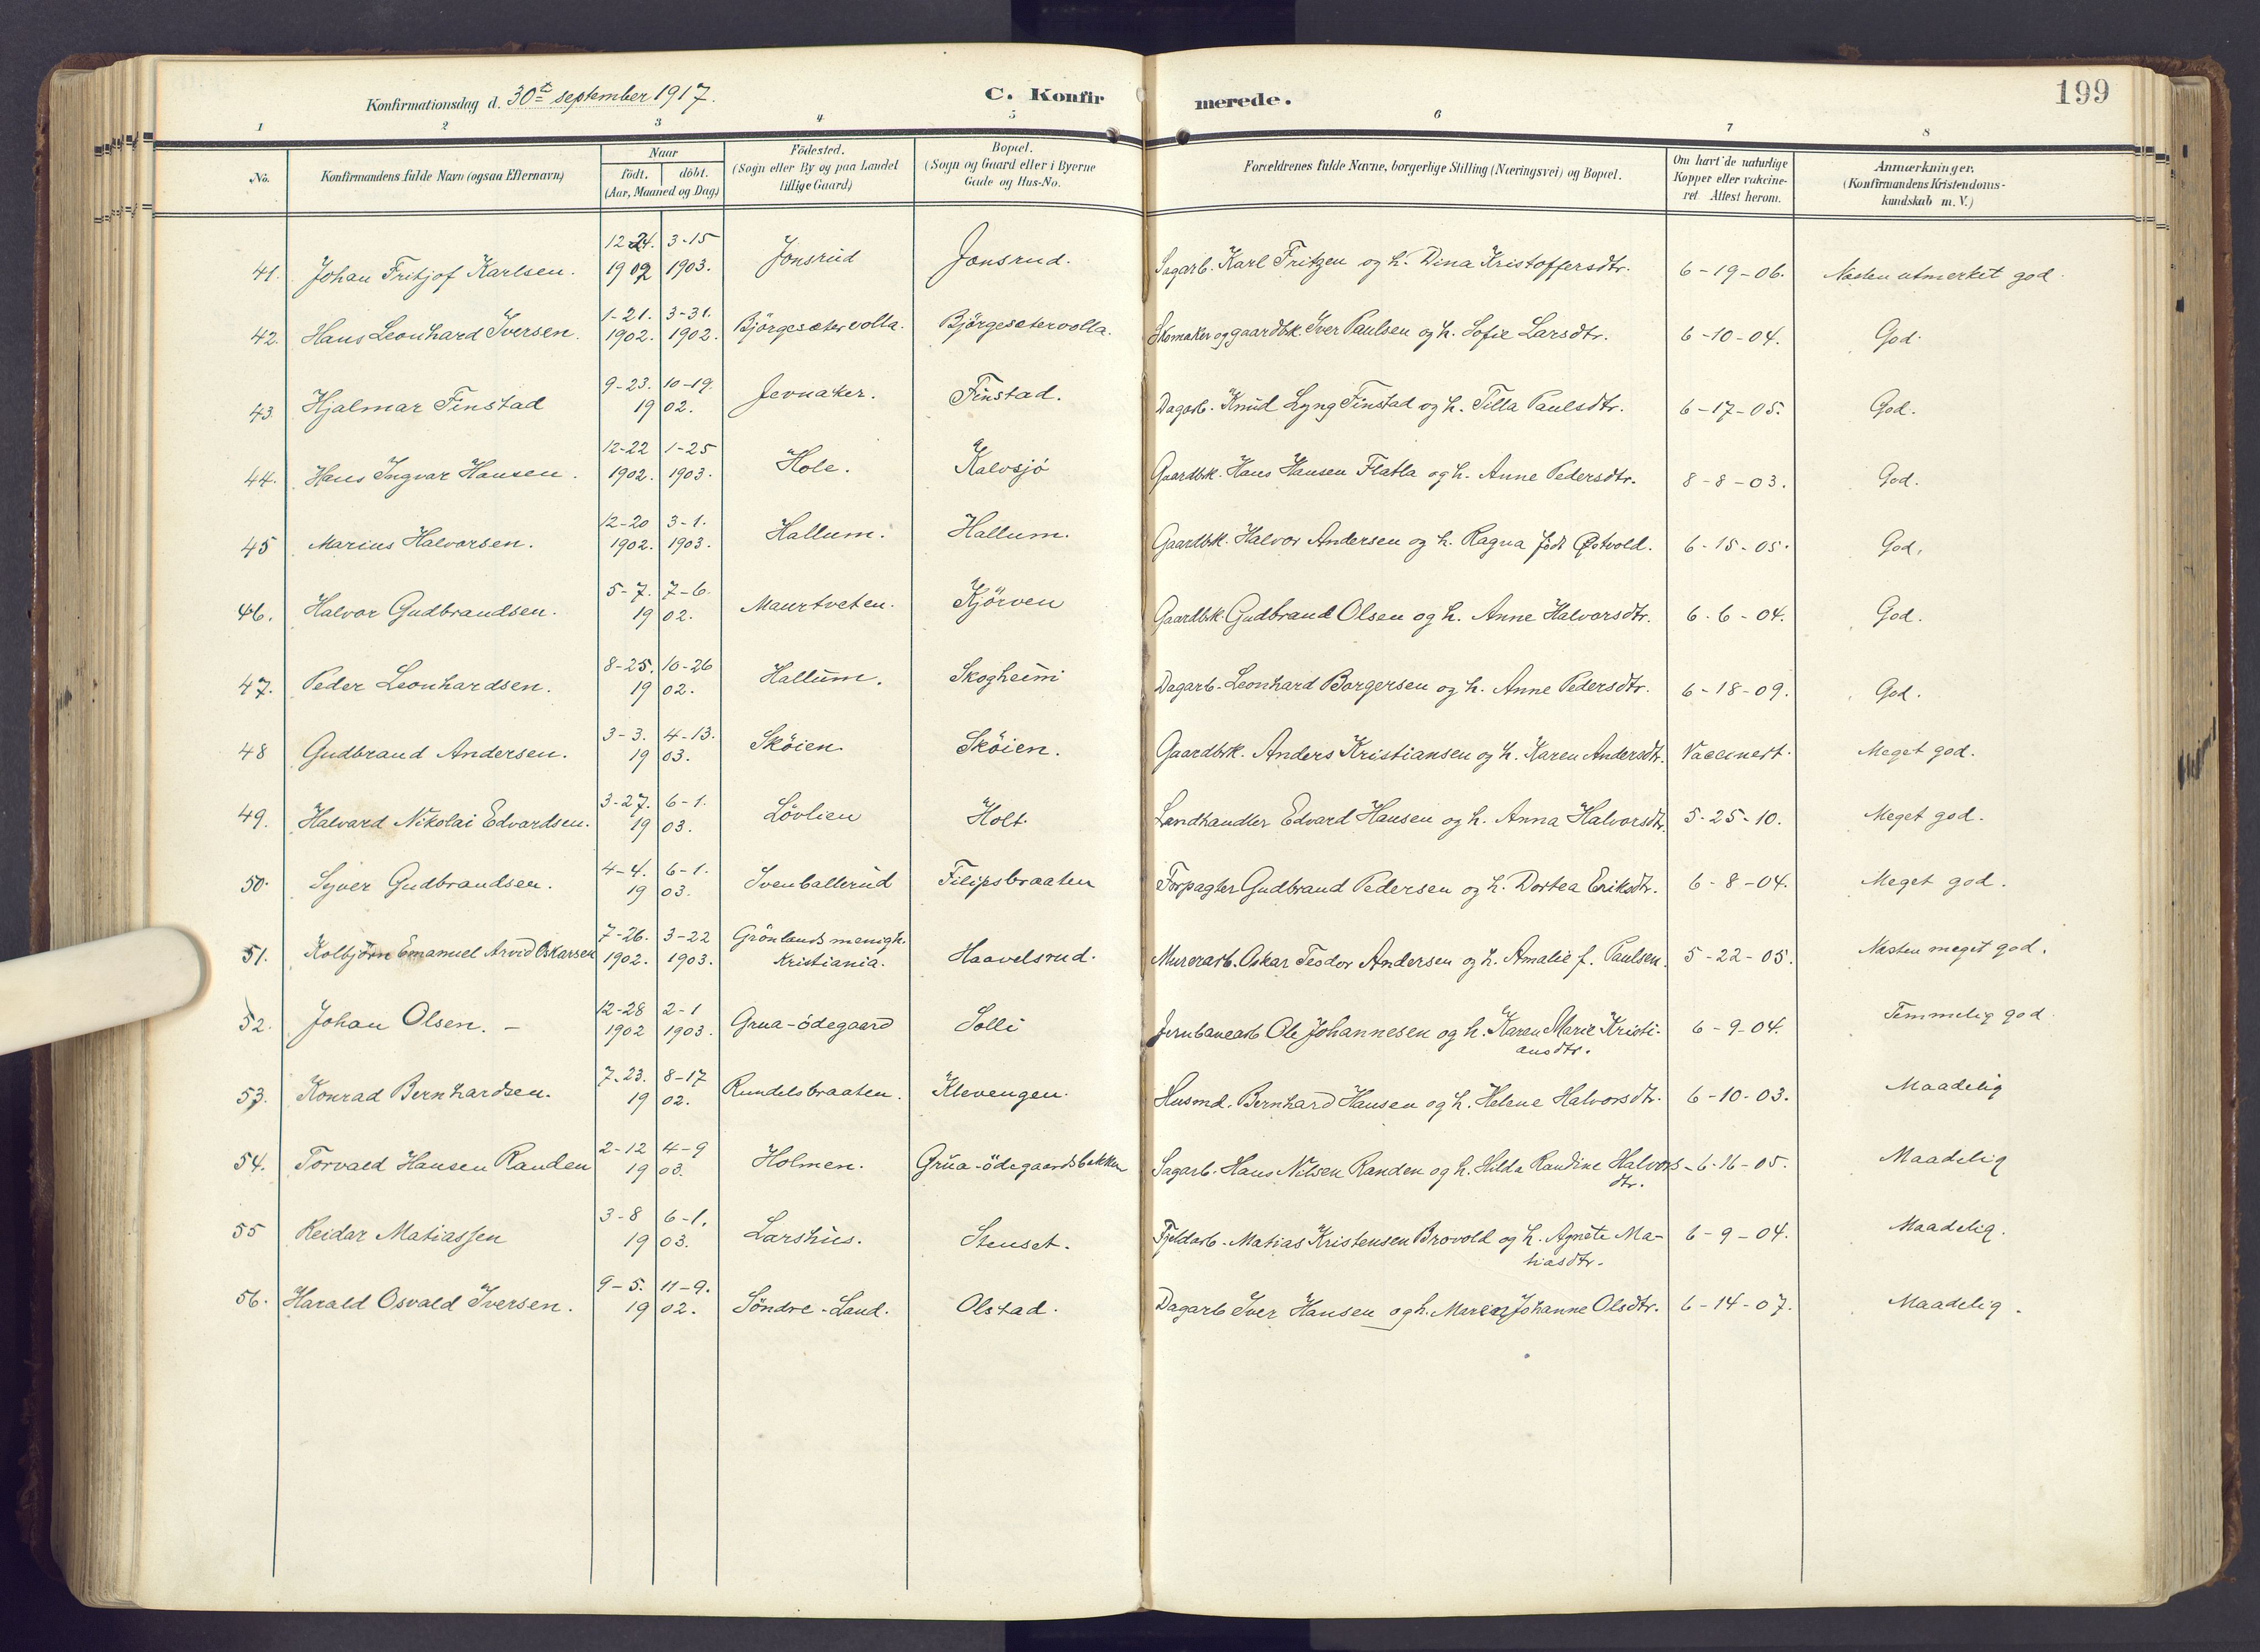 Konfirmationsdag d. 30te september 1917.
C. Konfirmerede.
199
1 2 3 4 5 6 7 8
No.
Konfirmandens fulde Navn (ogsaa Efternavn)
Naar
født. døbt.
(Aar, Maaned og Dag)
Fødested.
(Sogn eller By og paa Landet
tillige Gaard)
Bopæl.
(Sogn og Gaard eller i Byerne
Gade og Hus-No.
Forældrenes fulde Navne, borgerlige Stilling (Næringsvei) og Bopæl.
Om havt de naturlige
Kopper eller vakcine-
ret. Attest herom.
Anmærkninger.
(Konfirmandens Kristendoms-
kundskab m. V.)
41. Johan Fritjof Karlsen. 12-24. 1902 3-15 1903. Jonsrud Jonsrud. Sagarb. Karl Fritzen og h. Dina Kristoffersdtr. 6-19-06. Næsten utmerket god.
42. Hans Leonhard Iversen. 1-21. 1902. 3-31. 1902. Bjørgesætervolla. Bjørgesetervolla. Skomaker og gaardbk. Iver Paulsen og h. Sofie Larsdtr. 6-10-04. God.
43 Hjalmar Finstad 9-23. 10-19. 1902. Jevnaker. Finstad. Dagarb. Knud Lyng Finstad og h. Tilla Paulsdtr. 6-17-05. God.
44. Hans Ingvar Hansen. 12-22 1902. 1-25 1903. Hole. Kalvsjø Gaardbk. Hans Hansen Flatla og h. Anne Pedersdtr. 8-8-03. God.
45 Marius Halvorsen. 12-20 1902. 3-1. 1903. Hallum. Hallum. Gaardbk. Halvor Andersen og h. Ragna født Østvold. 6-15-05. God.
46. Halvor Gudbrandsen. 5-7. 7-6. 1902. Maurtveten. Kjørven Gaardbk. Gudbrand Olsen og h. Anne Halvorsdtr. 6-6-04. God.
47. Peder Leonhardsen. 8-25. 10-26 1902. Hallum. Skogheim Dagarb. Leonhard Borgersen og h. Anne Pedersdtr. 6-18-09. God.
48 Gudbrand Andersen. 3-3. 4-13. 1903. Skøien. Skøien. Gaardbk. Anders Kristiansen og h. Karen Andersdtr. Vaccinert. Meget god.
49. Halvard Nikolai Edvardsen. 3-27. 6-1. 1903. Løvlien Holt. Landhandler Edvard Hansen og h. Anna Halvorsdtr. 5-25-10. Meget god.
50. Syver Gudbrandsen. 4-4. 6-1. 1903. Svenballerud Filipsbraaten Forpagter Gudbrand Pedersen og h. Dortea Eriksdtr. 6-8-04. Meget god.
51. Kolbjørn Emanuel Arvid Oskarsen 7-26. 1902. 3-22 1903. Grønlands menigh. Kristiania. Haavelsrud. Murerarb. Oskar Teodor Andersen og h. Amalie f. Paulsen. 5-22-05. Næsten meget god.
52. Johan Olsen. - 12-28 1902 2-1 1903. Grua-ødegaard Solli Jernbanearb Ole Johannesen og h. Karen Marie Kristi-
ansdtr. 6-9-04. Temmelig god.
53. Konrad Bernhardsen. 7-23. 8-17 1902. Rundelsbraaten. Klevengen. Husmd. Bernhard Hansen og h. Helene Halvorsdtr. 6-10-03. Maadelig
54. Torvald Hansen Randen 2-12 4-9 1903. Holmen. Grua-ødegaardsbakken Sagarb. Hans Nilsen Randen og h. Hilda Randine Halvors-
dtr. 6-16-05. Maadelig
55 Reidar Matiassen 3-8 6-1. 1903. Larshus. Stenset. Fjeldarb. Matias Kristensen Brovold og h. Agnete Ma-
tiasdtr. 6-9-04. Maadelig.
56. Harald Osvald Iversen. 9-5. 11-9. 1902. Søndre-Land. Olstad. Dagarb Iver Hansen og h. Maren Johanne Olsdtr. 6-14-07. Maadelig.